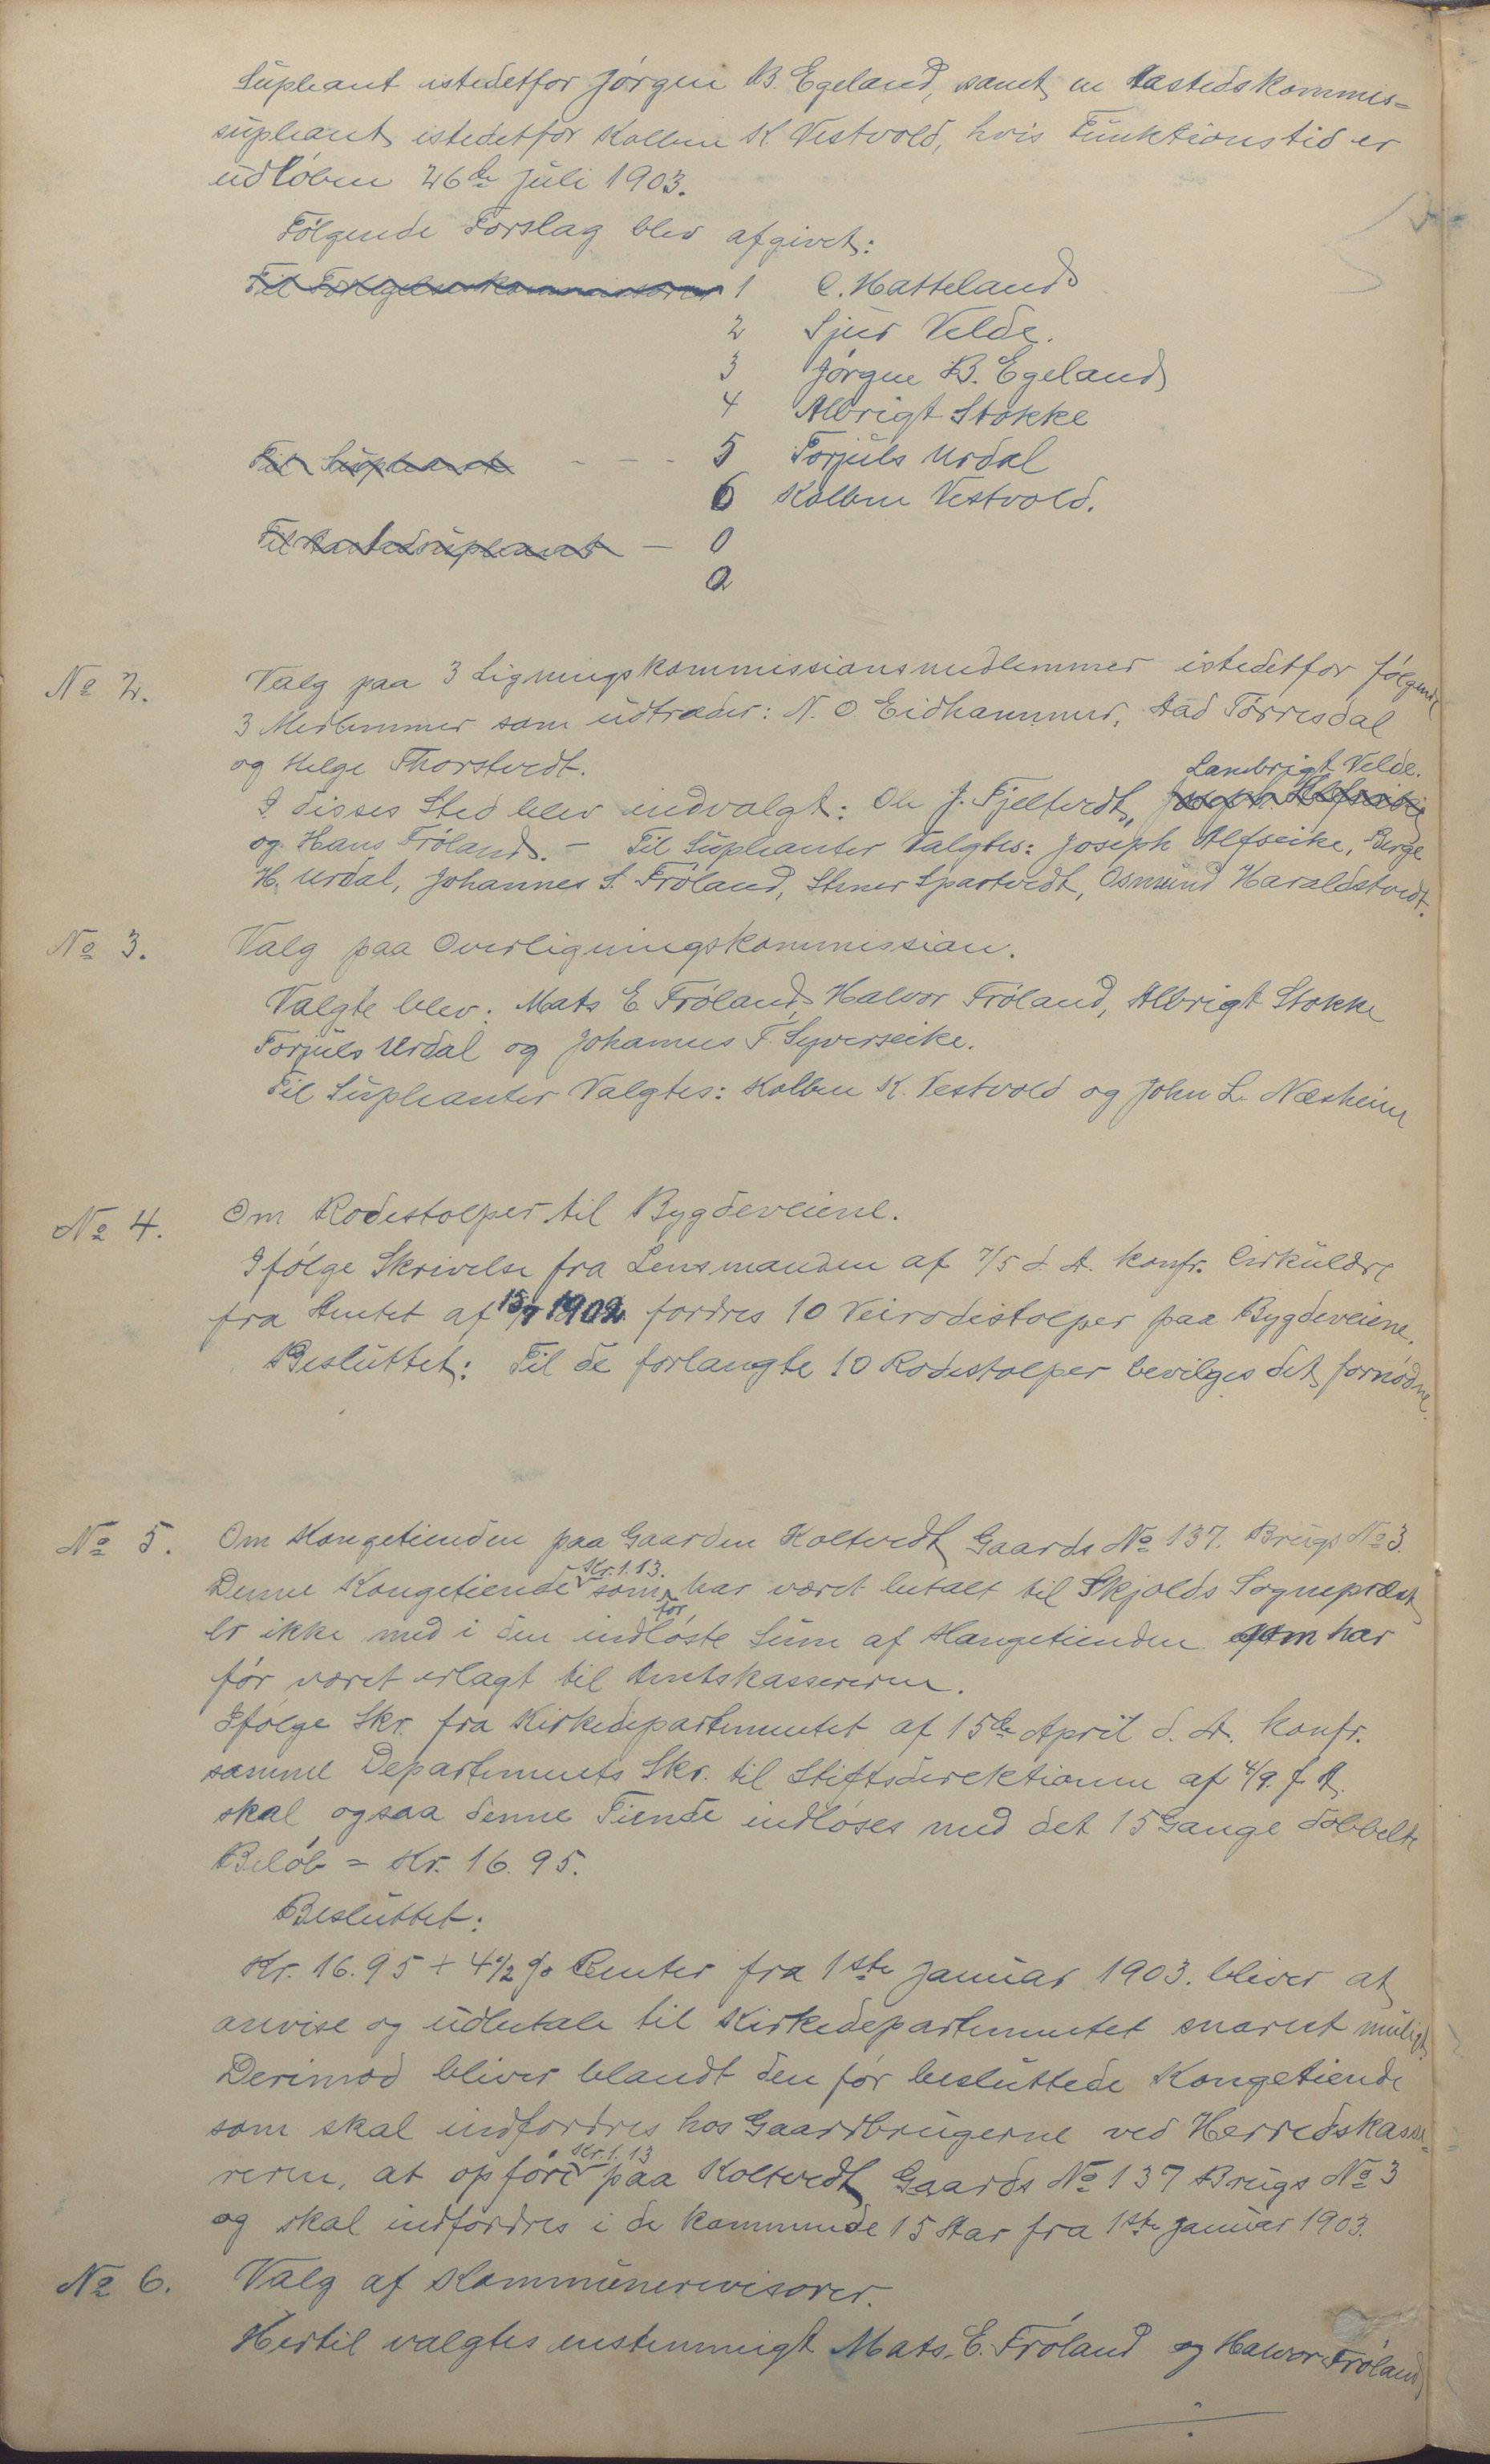 Supleant istedetfor Jørgen B. Egeland, samt en Aastedskommis=
supleant istedetfor Kolben K. Vestvold, hvis Funktionstid er
udløben 26de Juli 1903.
Følgende Forslag blev afgivet:
Til Forligelseskommissærer 1 C. Matteland
2 Sjur Velde.
3 Jørgen B. Egeland
4 Albrigt Stokke
Til Supleant - - - 5 Torjuls Urdal
6 Kolben Vestvold.
Til Aastedsupleant — 0
0
No 2. Valg paa 3 Ligningskommissionsmedlemmer istedetfor følgende
3 Medlemmer som udtræder: N. O. Eidhammer, Aad Tørresdal
og Helge Thorstvedt.
Lambrigt Velde.
I disses Sted blev indvalgt: Ole J. Fjeltvedt, Joseph Alfseike
og Hans Frøland. — Til Supleanter Valgtes: Joseph Alfseike, Berge
H. Urdal, Johannes S. Frøland, Stener Spartvedt, Osmund Haraldstvedt.
No 3. Valg paa Overligningskommission.
Valgte blev: Mats E. Frøland, Halvor Frøland, Albrigt Stokke
Torjuls Urdal og Johannes T. Syverseike.
Til Supleanter Valgtes: Kolben K. Vestvold og John L. Næsheim
No 4. Om Rodestolper til Bygdeveiene.
Ifølge Skrivelse fra Lensmanden af 7/5 d. A. konfr. Cirkulære
fra Amtet af 15/7 1902 fordres 10 Veirodestolper paa Bygdeveiene.
Besluttet: Til de forlangte 10 Rodestolper bevilges det fornødne.
No 5. Om Kongetienden paa Gaarden Koltvedt Gaards No 137. Brugs No 3.
Kr. 1.13.
Denne Kongetiende som har været betalt til Skjolds Sogneprest
før
er ikke med i den indløste Sum af Kongetienden som har
før været erlagt til Amtskassereren.
Ifølge Skr. fra Kirkedepartementet af 15de April d. A. konfr.
samme Departements Skr. til Stiftsdirektionen af 4/9. f. A.
skal ogsaa denne Tiende indløses med det 15 Gange dobbelte
Beløb = Kr. 16.95.
Besluttet:
Kr. 16.95 + 4 1/2 % Renter fra 1ste Januar 1903. bliver at
anvise og udbetale til Kirkedepartementet snarest muligt
Derimod bliver blandt den før besluttede Kongetiende
som skal indfordres hos Gaardbrugerne ved Herredskasse=
Kr. 1.13
reren, at opføre paa Koltvedt Gaards No 137 Brugs No 3
og skal indfordres i de kommende 15 Aar fra 1ste Januar 1903.
No 6. Valg af Kommunerevisorer.
Hertil valgtes enstemmigt Mats. E. Frøland og Halvor Frøland